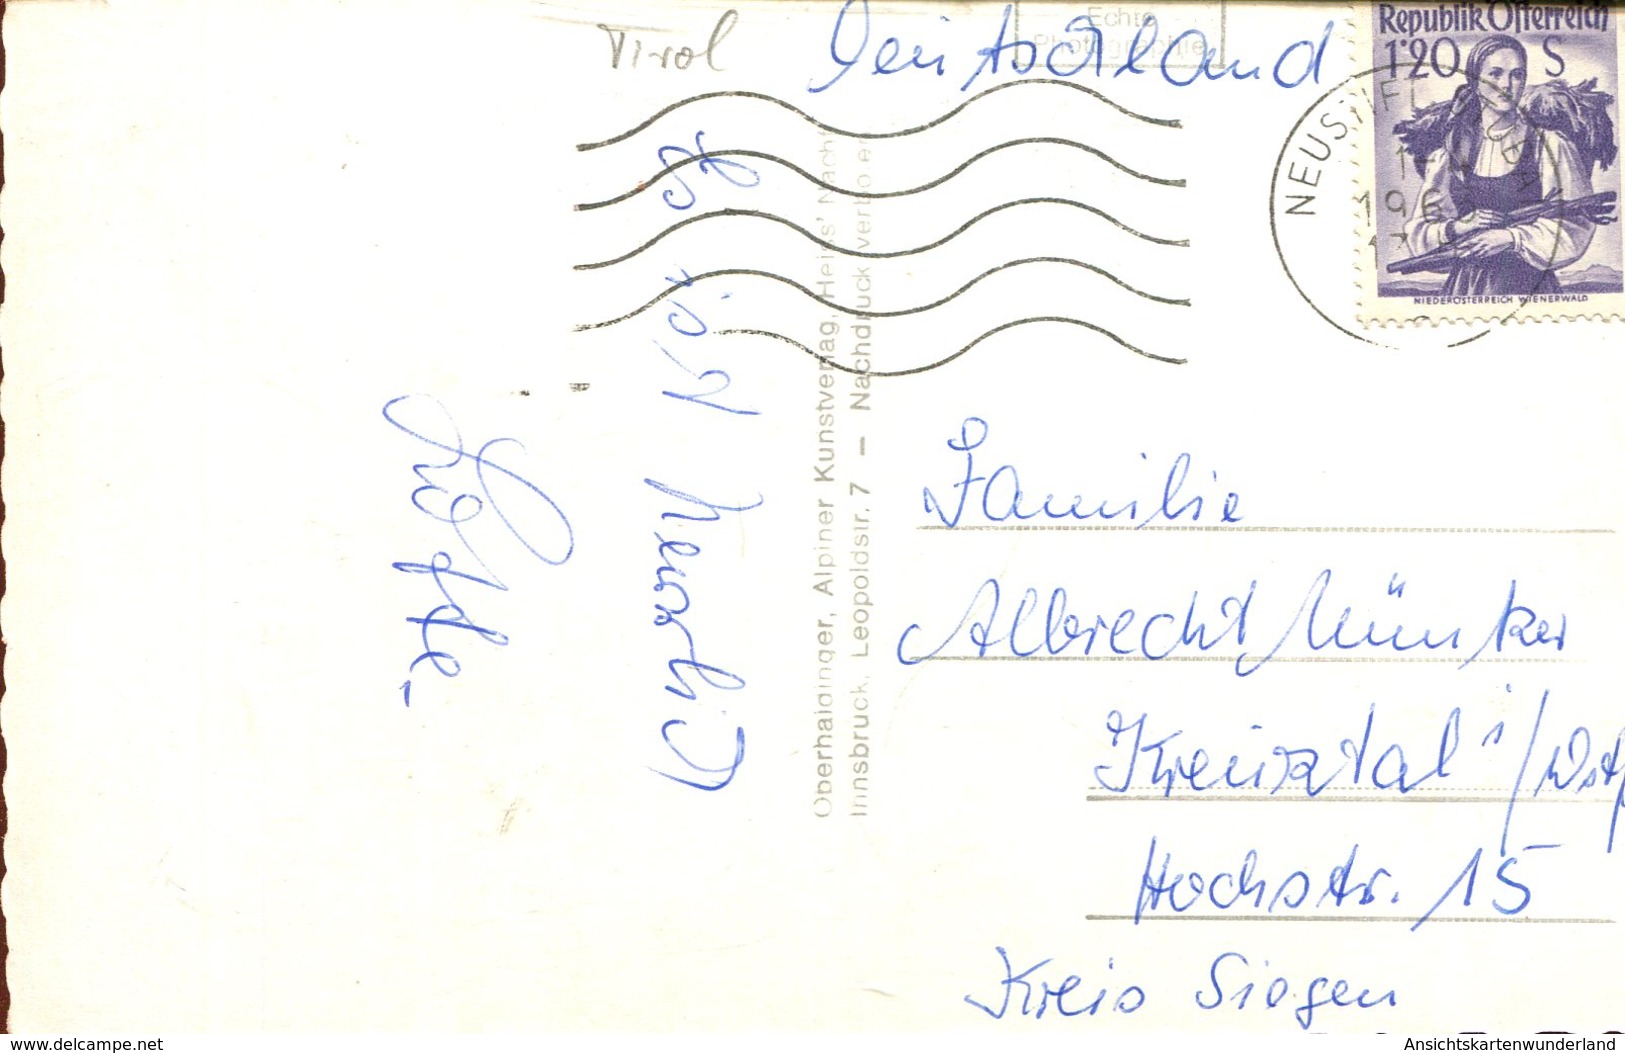 Tirol
Deutschland
Echte
Photographie
Republik Österreich
1·20 S
NIEDERÖSTERREICH WIENERWALD
NEUSTIFT
196
17
Es ist herrlich
Lieselotte
Oberhaidinger, Alpiner Kunstverlag, Heiss' Nachf
Innsbruck, Leopoldstr. 7 — Nachdruck verboten
Familie
Albrecht Münker
Kreuztal i/Westf
Hochstr. 15
Kreis Siegen
delcampe.net
Ansichtskartenwunderland